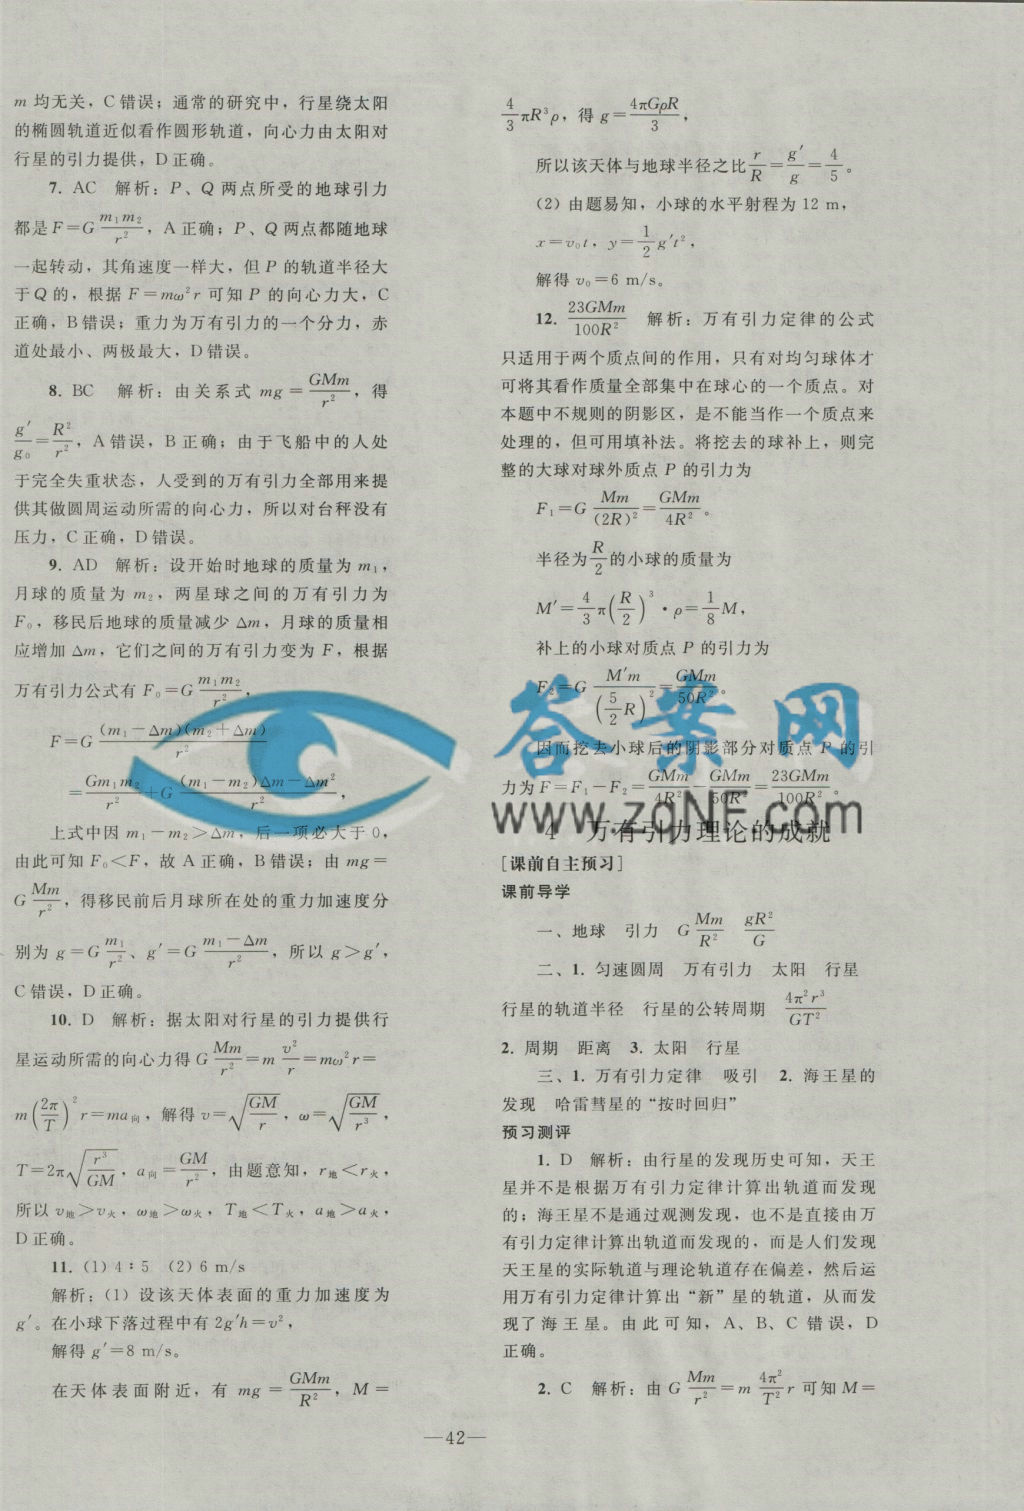 m 均无关，C 错误；通常的研究中，行星绕太阳
的椭圆轨道近似看作圆形轨道，向心力由太阳对
行星的引力提供，D 正确。
7. AC 解析：P、Q 两点所受的地球引力
都是 F＝G m₁m₂/r²，A 正确；P、Q 两点都随地球
一起转动，其角速度一样大，但 P 的轨道半径大
于 Q 的，根据 F＝mω²r 可知 P 的向心力大，C
正确，B 错误；重力为万有引力的一个分力，赤
道处最小、两极最大，D 错误。
8. BC 解析：由关系式 mg＝GMm/r²，得
g′/g₀＝R²/r²，A 错误，B 正确；由于飞船中的人处
于完全失重状态，人受到的万有引力全部用来提
供其做圆周运动所需的向心力，所以对台秤没有
压力，C 正确，D 错误。
9. AD 解析：设开始时地球的质量为 m₁，
月球的质量为 m₂，两星球之间的万有引力为
F₀，移民后地球的质量减少 Δm，月球的质量相
应增加 Δm，它们之间的万有引力变为 F，根据
万有引力公式有 F₀＝G m₁m₂/r²，
F＝G (m₁－Δm)(m₂＋Δm)/r²
＝Gm₁m₂/r²＋G (m₁－m₂)Δm－Δm²/r²，
上式中因 m₁－m₂＞Δm，后一项必大于 0，
由此可知 F₀＜F，故 A 正确，B 错误；由 mg＝
G Mm/r²，得移民前后月球所在处的重力加速度分
别为 g＝G m₁/r²、g′＝G (m₁－Δm)/r²，所以 g＞g′，
C 错误，D 正确。
10. D 解析：据太阳对行星的引力提供行
星运动所需的向心力得 G Mm/r²＝m v²/r＝mω²r＝
m(2π/T)²r＝ma向，解得 v＝√(GM/r)，ω＝√(GM/r³)，
T＝2π√(r³/GM)，a向＝GM/r²，由题意知，r地＜r火，
所以 v地＞v火，ω地＞ω火，T地＜T火，a地＞a火，
D 正确。
11. (1) 4∶5 (2) 6 m/s
解析：(1) 设该天体表面的重力加速度为
g′。在小球下落过程中有 2g′h＝v²，
解得 g′＝8 m/s。
在天体表面附近，有 mg＝GMm/R²，M＝
4/3 πR³ρ，得 g＝4πGρR/3，
所以该天体与地球半径之比 r/R＝g′/g＝4/5。
(2) 由题易知，小球的水平射程为 12 m，
x＝v₀t，y＝1/2 g′t²，
解得 v₀＝6 m/s。
12. 23GMm/100R² 解析：万有引力定律的公式
只适用于两个质点间的作用，只有对均匀球体才
可将其看作质量全部集中在球心的一个质点。对
本题中不规则的阴影区，是不能当作一个质点来
处理的，但可用填补法。将挖去的球补上，则完
整的大球对球外质点 P 的引力为
F₁＝G Mm/(2R)²＝GMm/4R²。
半径为 R/2 的小球的质量为
M′＝4/3 π(R/2)³·ρ＝1/8 M，
补上的小球对质点 P 的引力为
F₂＝G M′m/(5/2 R)²＝GMm/50R²。
因而挖去小球后的阴影部分对质点 P 的引
力为 F＝F₁－F₂＝GMm/4R²－GMm/50R²＝23GMm/100R²。
答案网
www.zqNF.com
4 万有引力理论的成就
[课前自主预习]
课前导学
一、地球 引力 G Mm/R² gR²/G
二、1. 匀速圆周 万有引力 太阳 行星
行星的轨道半径 行星的公转周期 4π²r³/GT²
2. 周期 距离 3. 太阳 行星
三、1. 万有引力定律 吸引 2. 海王星的
发现 哈雷彗星的“按时回归”
预习测评
1. D 解析：由行星的发现历史可知，天王
星并不是根据万有引力定律计算出轨道而发现
的；海王星不是通过观测发现，也不是直接由万
有引力定律计算出轨道而发现的，而是人们发现
天王星的实际轨道与理论轨道存在偏差，然后运
用万有引力定律计算出“新”星的轨道，从而发
现了海王星。由此可知，A、B、C 错误，D
正确。
2. C 解析：由 G Mm/r²＝m 4π²/T² r 可知 M＝
—42—